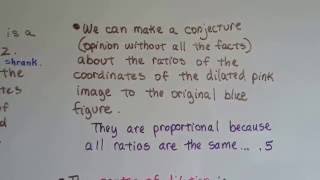 is a
2.
shrank.
the
tes
of
d
• We can make a conjecture
(opinion without all the facts)
about the ratios of the
coordinates of the dilated pink
image to the original blue
figure.
They are proportional because
all ratios are the same... .5